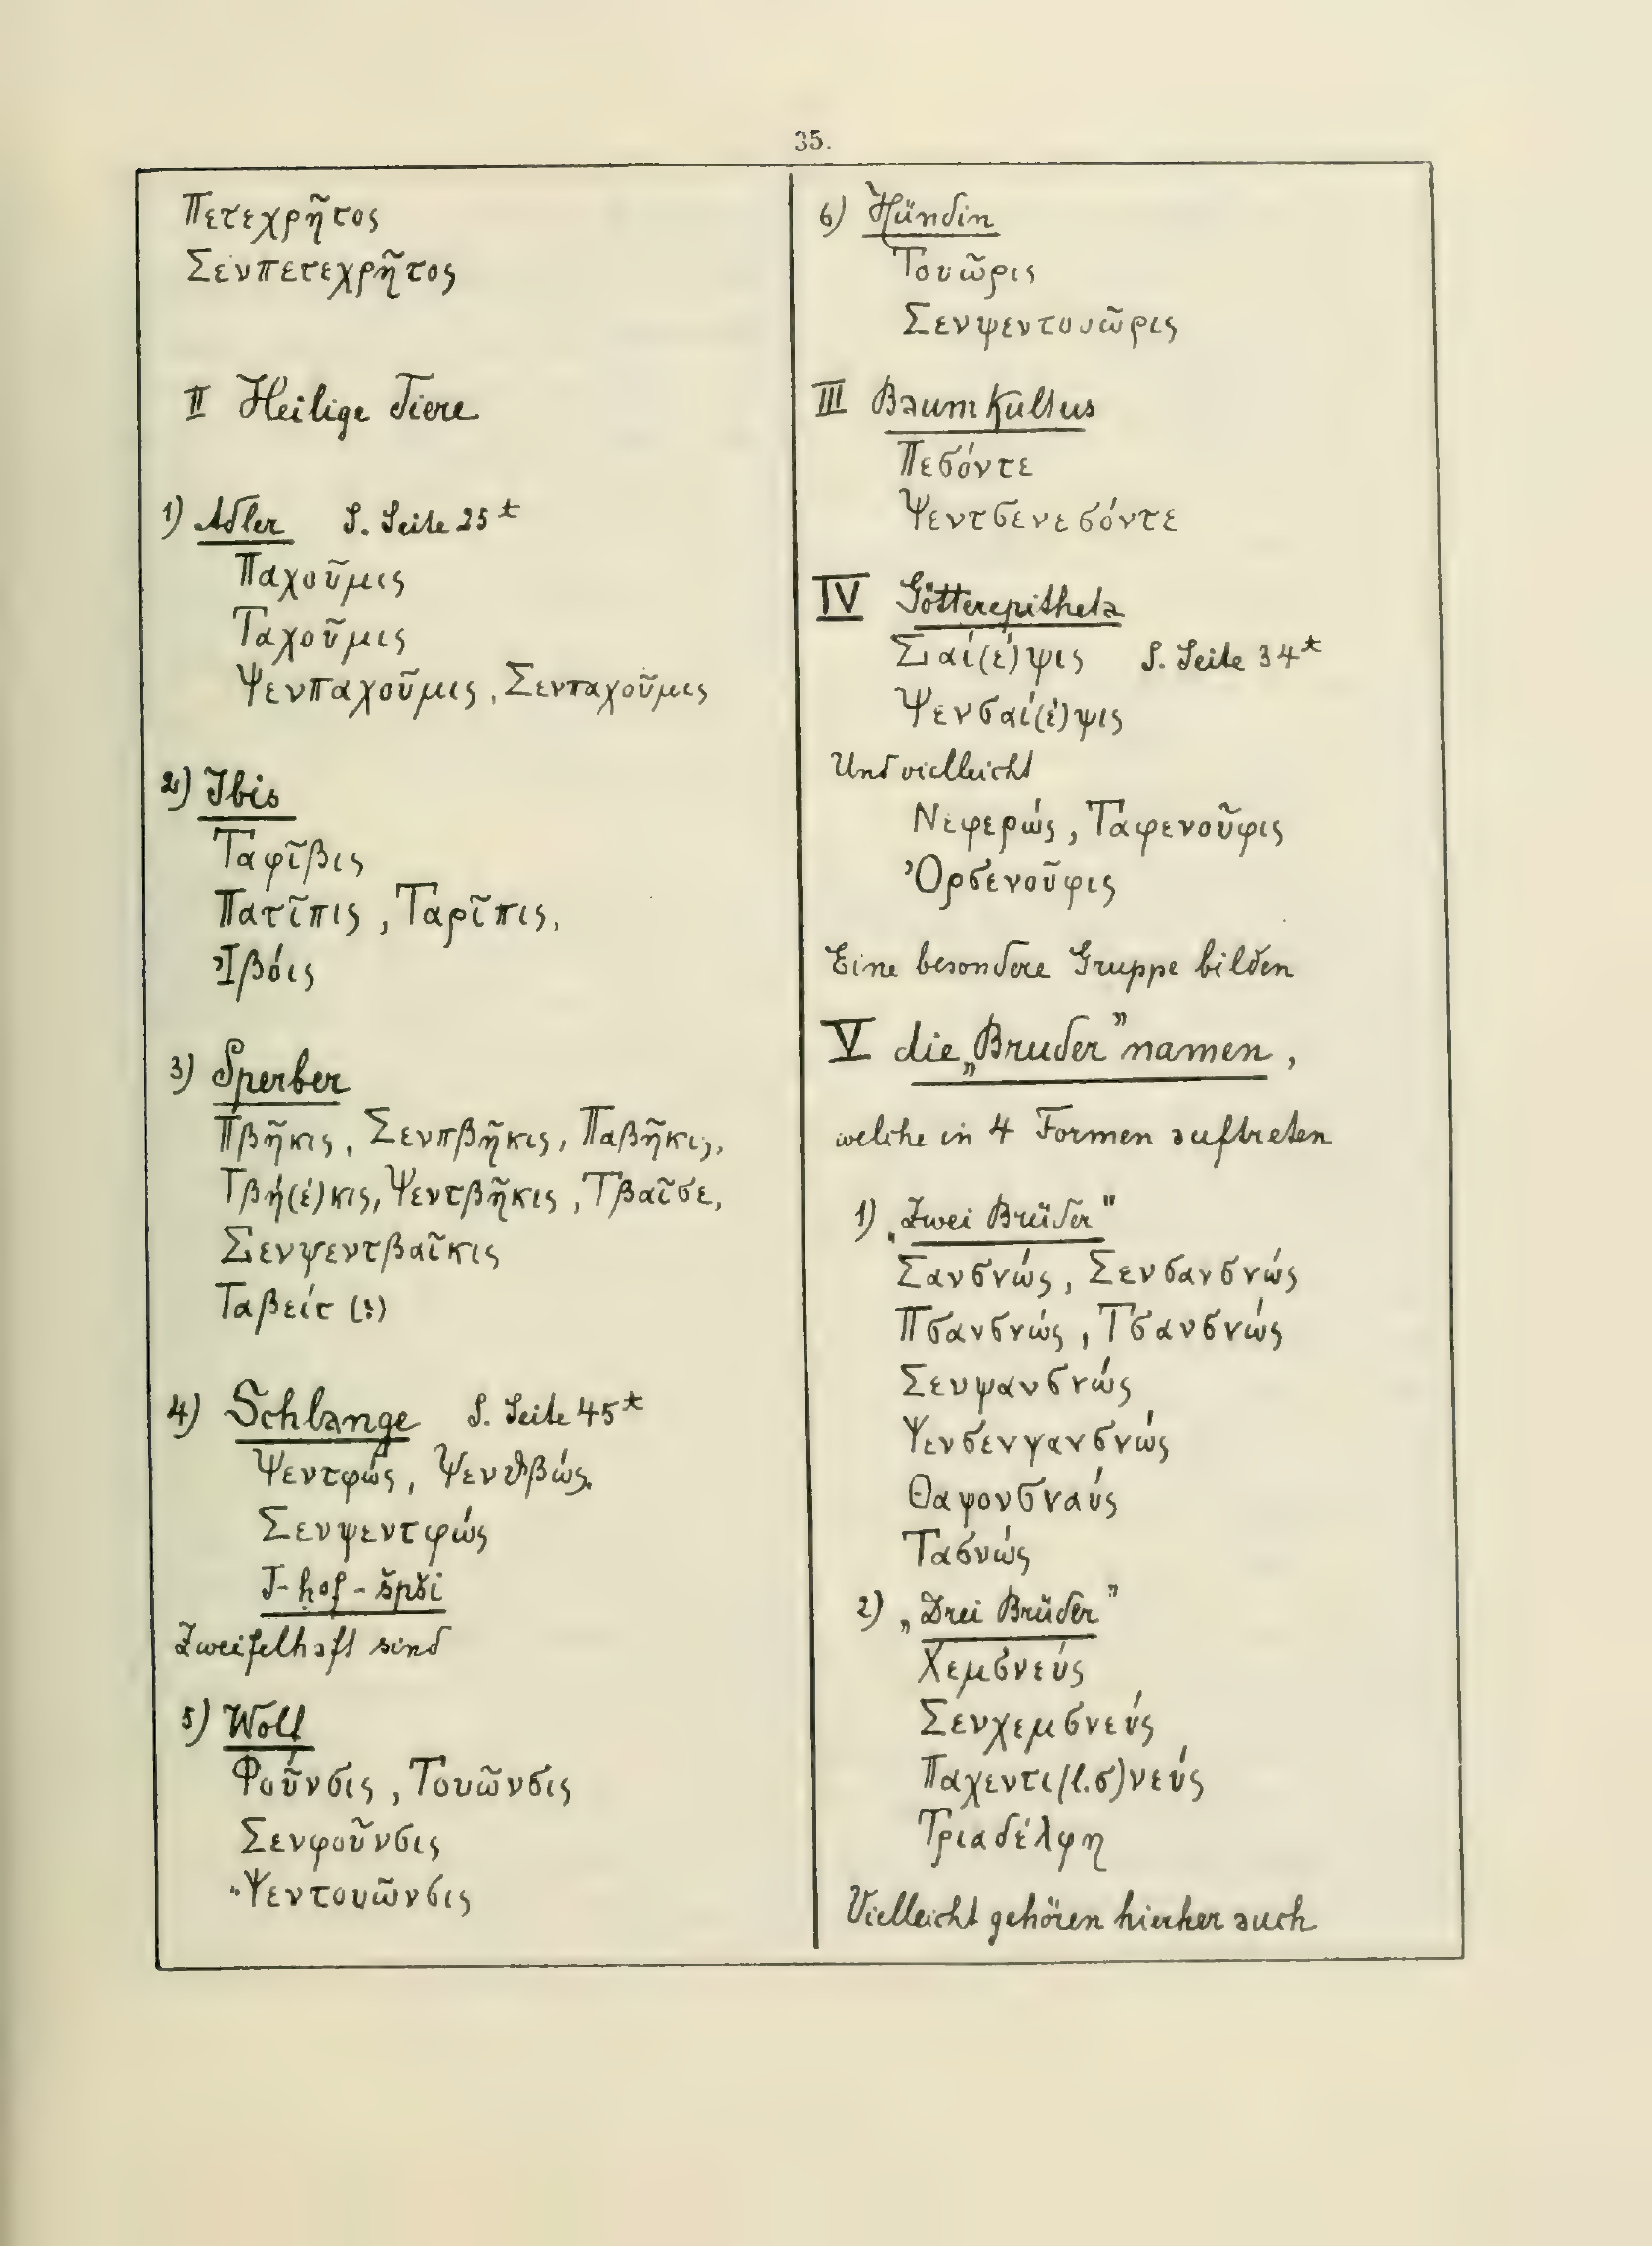 35.
Πετεχρῆτος
Σενπετεχρῆτος
II Heilige Tiere
1) Adler S. Seite 25*
Παχοῦμις
Ταχοῦμις
Ψενπαχοῦμις, Σενπαχοῦμις
2) Ibis
Ταφῖβις
Πατῖπις, Ταρῖπις,
Ἰβόις
3) Sperber
Πβῆκις, Σενπβῆκις, Παβῆκις,
Τβή(έ)κις, Ψεντβῆκις, Τβαῖσε,
Σενψεντβαῖκις
Ταβείτ (?)
4) Schlange S. Seite 45*
Ψεντφώς, Ψενθβώς,
Σενψεντφώς
T-ḥof-špši
Zweifelhaft sind
5) Wolf
Φοῦνσις, Τουῶνσις
Σενφοῦνσις
Ψεντουῶνσις
6) Hündin
Τουῶρις
Σενψεντουῶρις
III Baumkultus
Πεσόντε
Ψεντσενεσόντε
IV Götterepitheta
Σαί(έ)ψις S. Seite 34*
Ψενσαί(έ)ψις
Und vielleicht
Νεφερώς, Ταφενοῦφις
Ὀρσενοῦφις
Eine besondere Gruppe bilden
V die „Bruder” namen,
welche in 4 Formen auftreten
1) „Zwei Brüder"
Σανσνώς, Σενσανσνώς
Πσανσνώς, Τσανσνώς
Σενψανσνώς
Ψενσενψανσνώς
Θαψονσναύς
Τασνώς
2) „Drei Brüder”
Χεμσνεύς
Σενχεμσνεύς
Παχεντι(l.σ)νεύς
Τριαδέλφη
Vielleicht gehören hierher auch